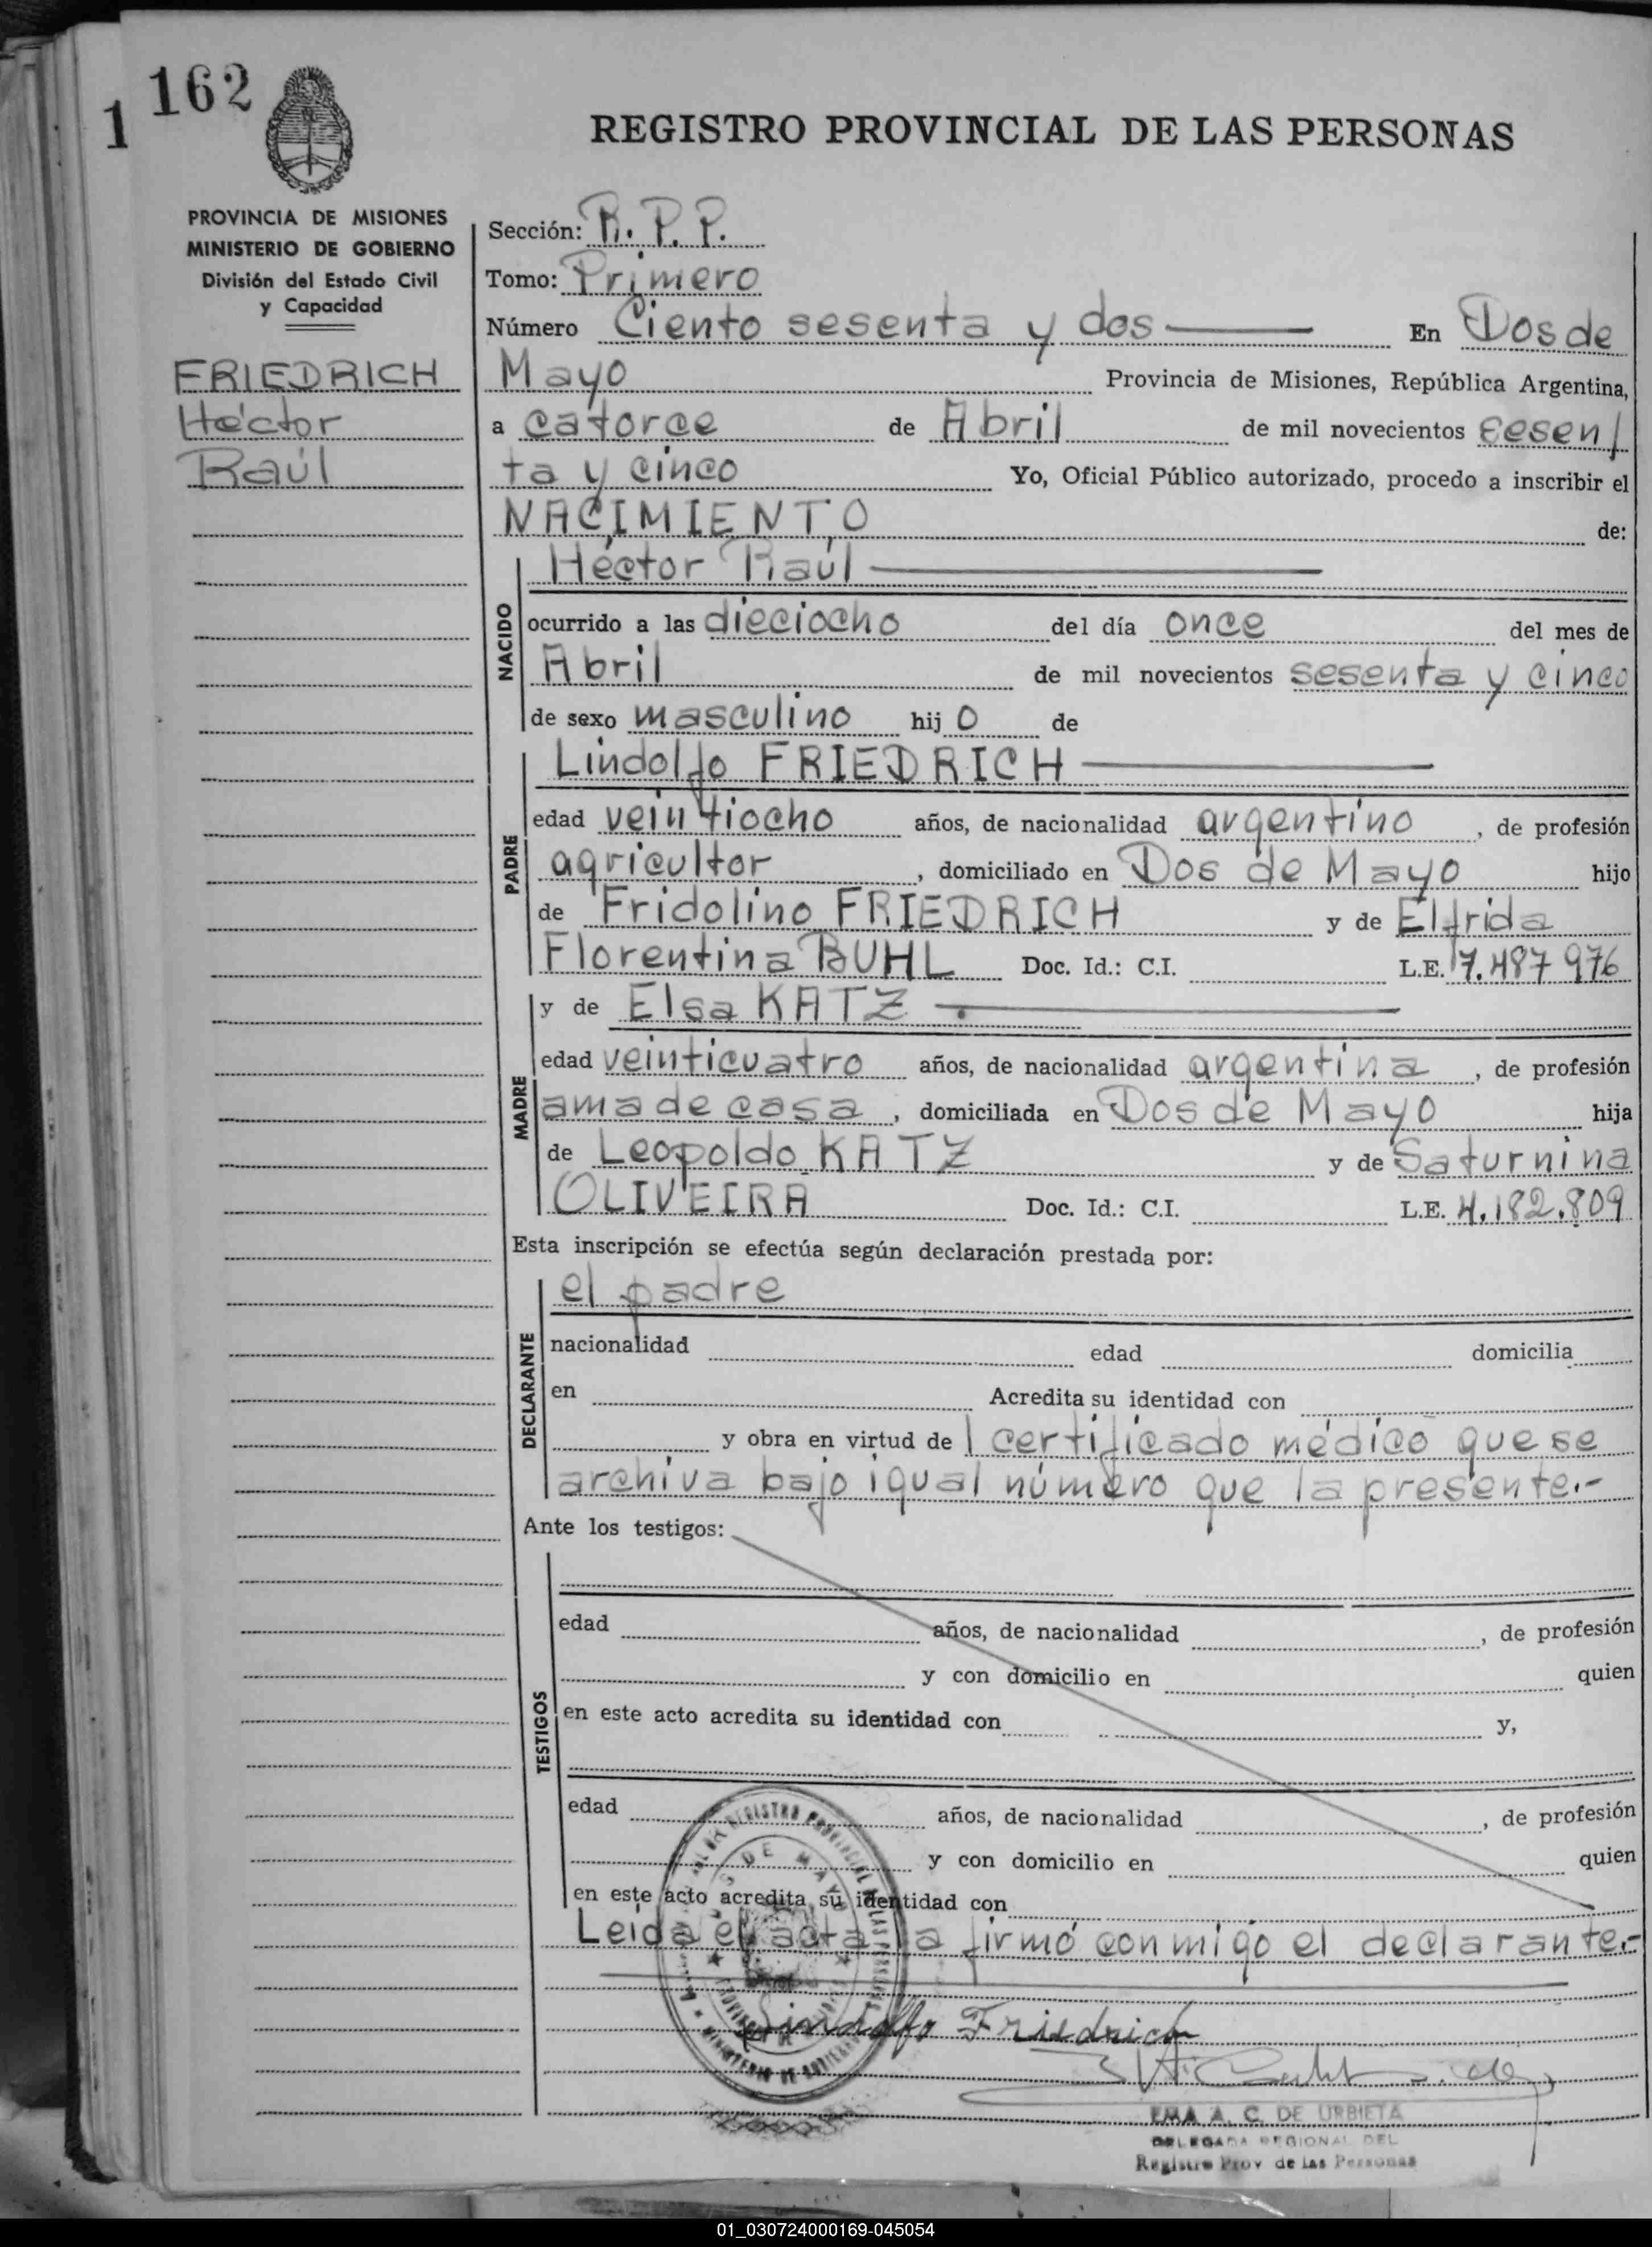 1 162
REGISTRO PROVINCIAL DE LAS PERSONAS
PROVINCIA DE MISIONES
MINISTERIO DE GOBIERNO
División del Estado Civil
y Capacidad
FRIEDRICH
Héctor
Raúl
Sección: R. P. P.
Tomo: Primero
Número Ciento sesenta y dos En Dos de
Mayo Provincia de Misiones, República Argentina,
a catorce de Abril de mil novecientos sesen/
ta y cinco Yo, Oficial Público autorizado, procedo a inscribir el
NACIMIENTO de:
NACIDO
Héctor Raúl
ocurrido a las dieciocho del día once del mes de
Abril de mil novecientos sesenta y cinco
de sexo masculino hijo de
PADRE
Lindolfo FRIEDRICH
edad veintiocho años, de nacionalidad argentino, de profesión
agricultor, domiciliado en Dos de Mayo hijo
de Fridolino FRIEDRICH y de Elfrida
Florentina BUHL Doc. Id.: C.I. L.E. 7.487976
MADRE
y de Elsa KATZ
edad veinticuatro años, de nacionalidad argentina, de profesión
ama de casa, domiciliada en Dos de Mayo hija
de Leopoldo KATZ y de Saturnina
OLIVEIRA Doc. Id.: C.I. L.E. 4.182.809
Esta inscripción se efectúa según declaración prestada por:
DECLARANTE
el padre
nacionalidad edad domicilia
en Acredita su identidad con
y obra en virtud de 1 certificado médico que se
archiva bajo igual número que la presente.-
Ante los testigos:
TESTIGOS
edad años, de nacionalidad , de profesión
y con domicilio en quien
en este acto acredita su identidad con y,
edad años, de nacionalidad , de profesión
y con domicilio en quien
en este acto acredita su identidad con
Leida el acta la firmó conmigo el declarante.-
Lindolfo Friedrich
EMA A. C. DE URBIETA
DELEGADA REGIONAL DEL
Registro Prov de las Personas
01_030724000169-045054